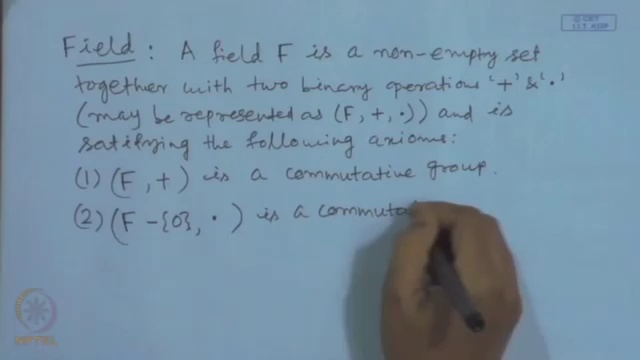 © CET
I.I.T. KGP
Field : A field F is a non-empty set
together with two binary operations '+' & '.'
(may be represented as (F, +, .)) and is
satisfying the following axioms:
(1) (F, +) is a commutative group.
(2) (F - {0}, .) is a commuta
NPTEL